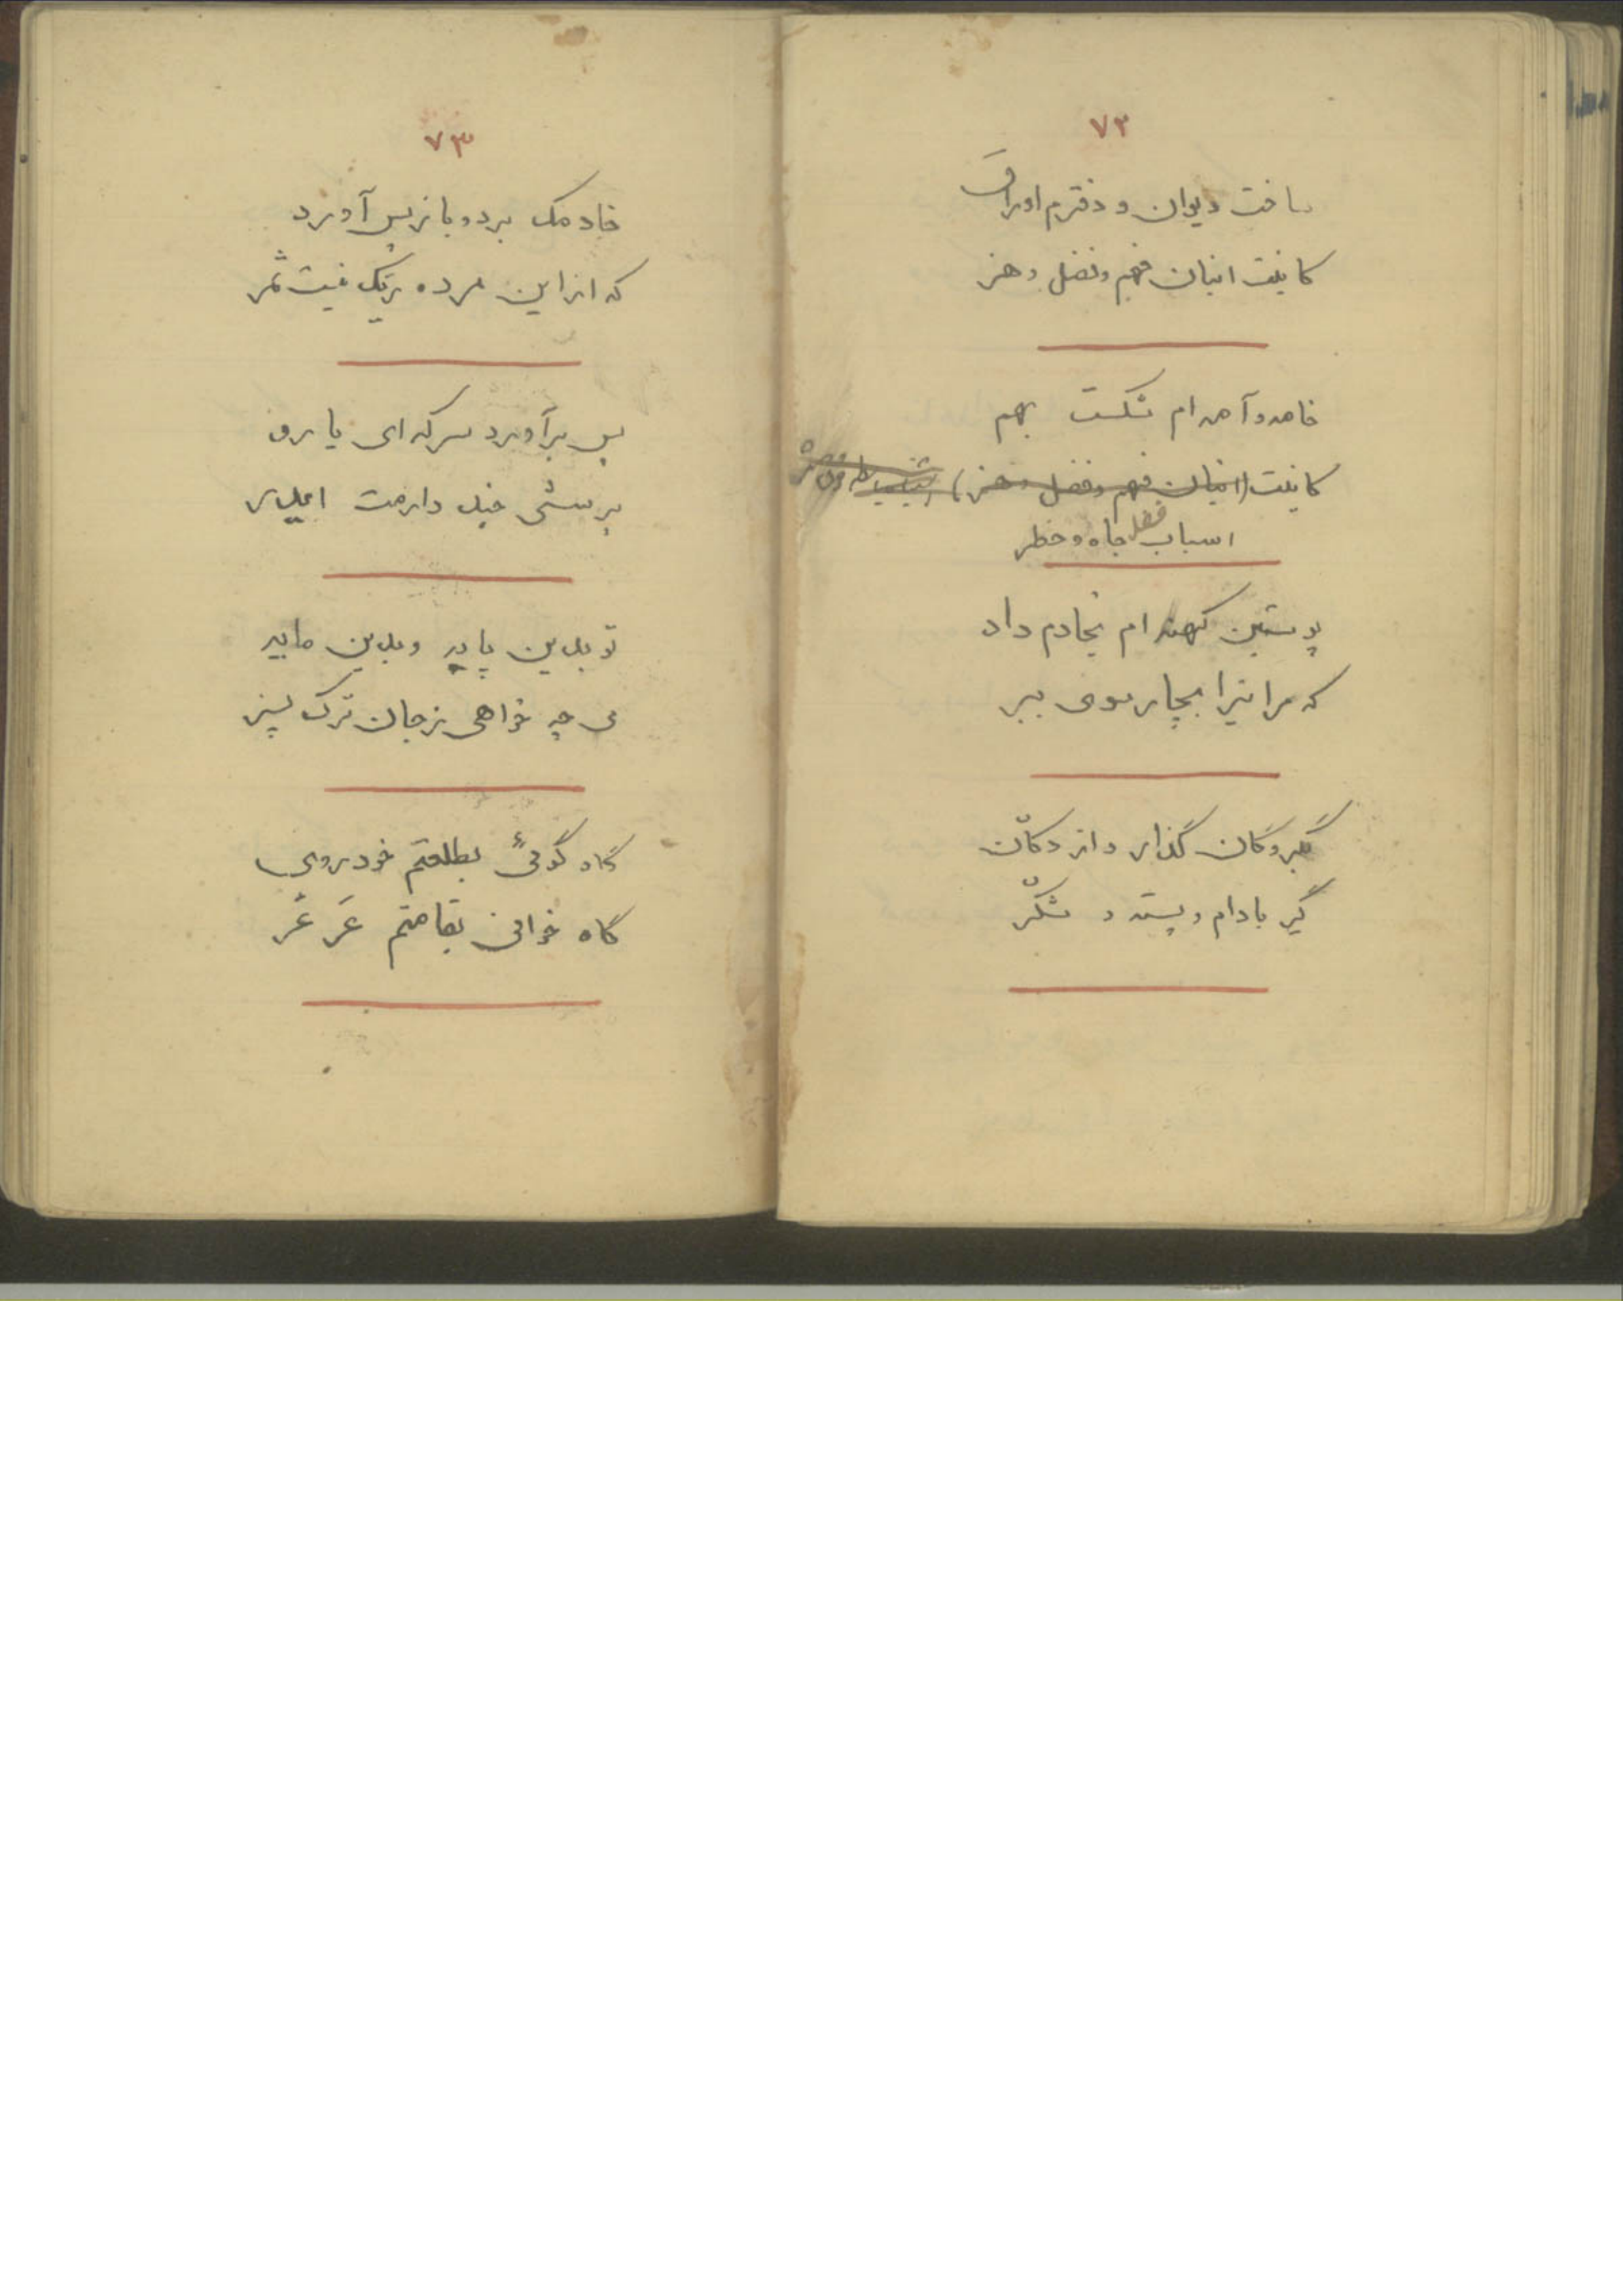 ٧٢
ساخت دیوان و دفترم اوراق
کاینت انبان فهم و فضل و هنر
خامه و آمه ام شکست بهم
کاینت (انبان فهم و فضل و هنر)
اسباب فضل جاه و خطر
پوستین کهنه ام بخادم داد
که مر اینرا بچارسوی ببر
گبروگان گذار و از دکان
گیر بادام و پسته و شکّر
٧٣
خادمک برد و باز پس آورد
که از این مرده ریگ نیست ثمر
پس برآورد سر که ای یارو
پرسشی چند دارمت ایدر
تو بدین پایه و بدین مایه
می چه خواهی ز جان ترک پسر
گاه گوئی بطلعتم خودروی
گاه خوانی بقامتم عَرعَر